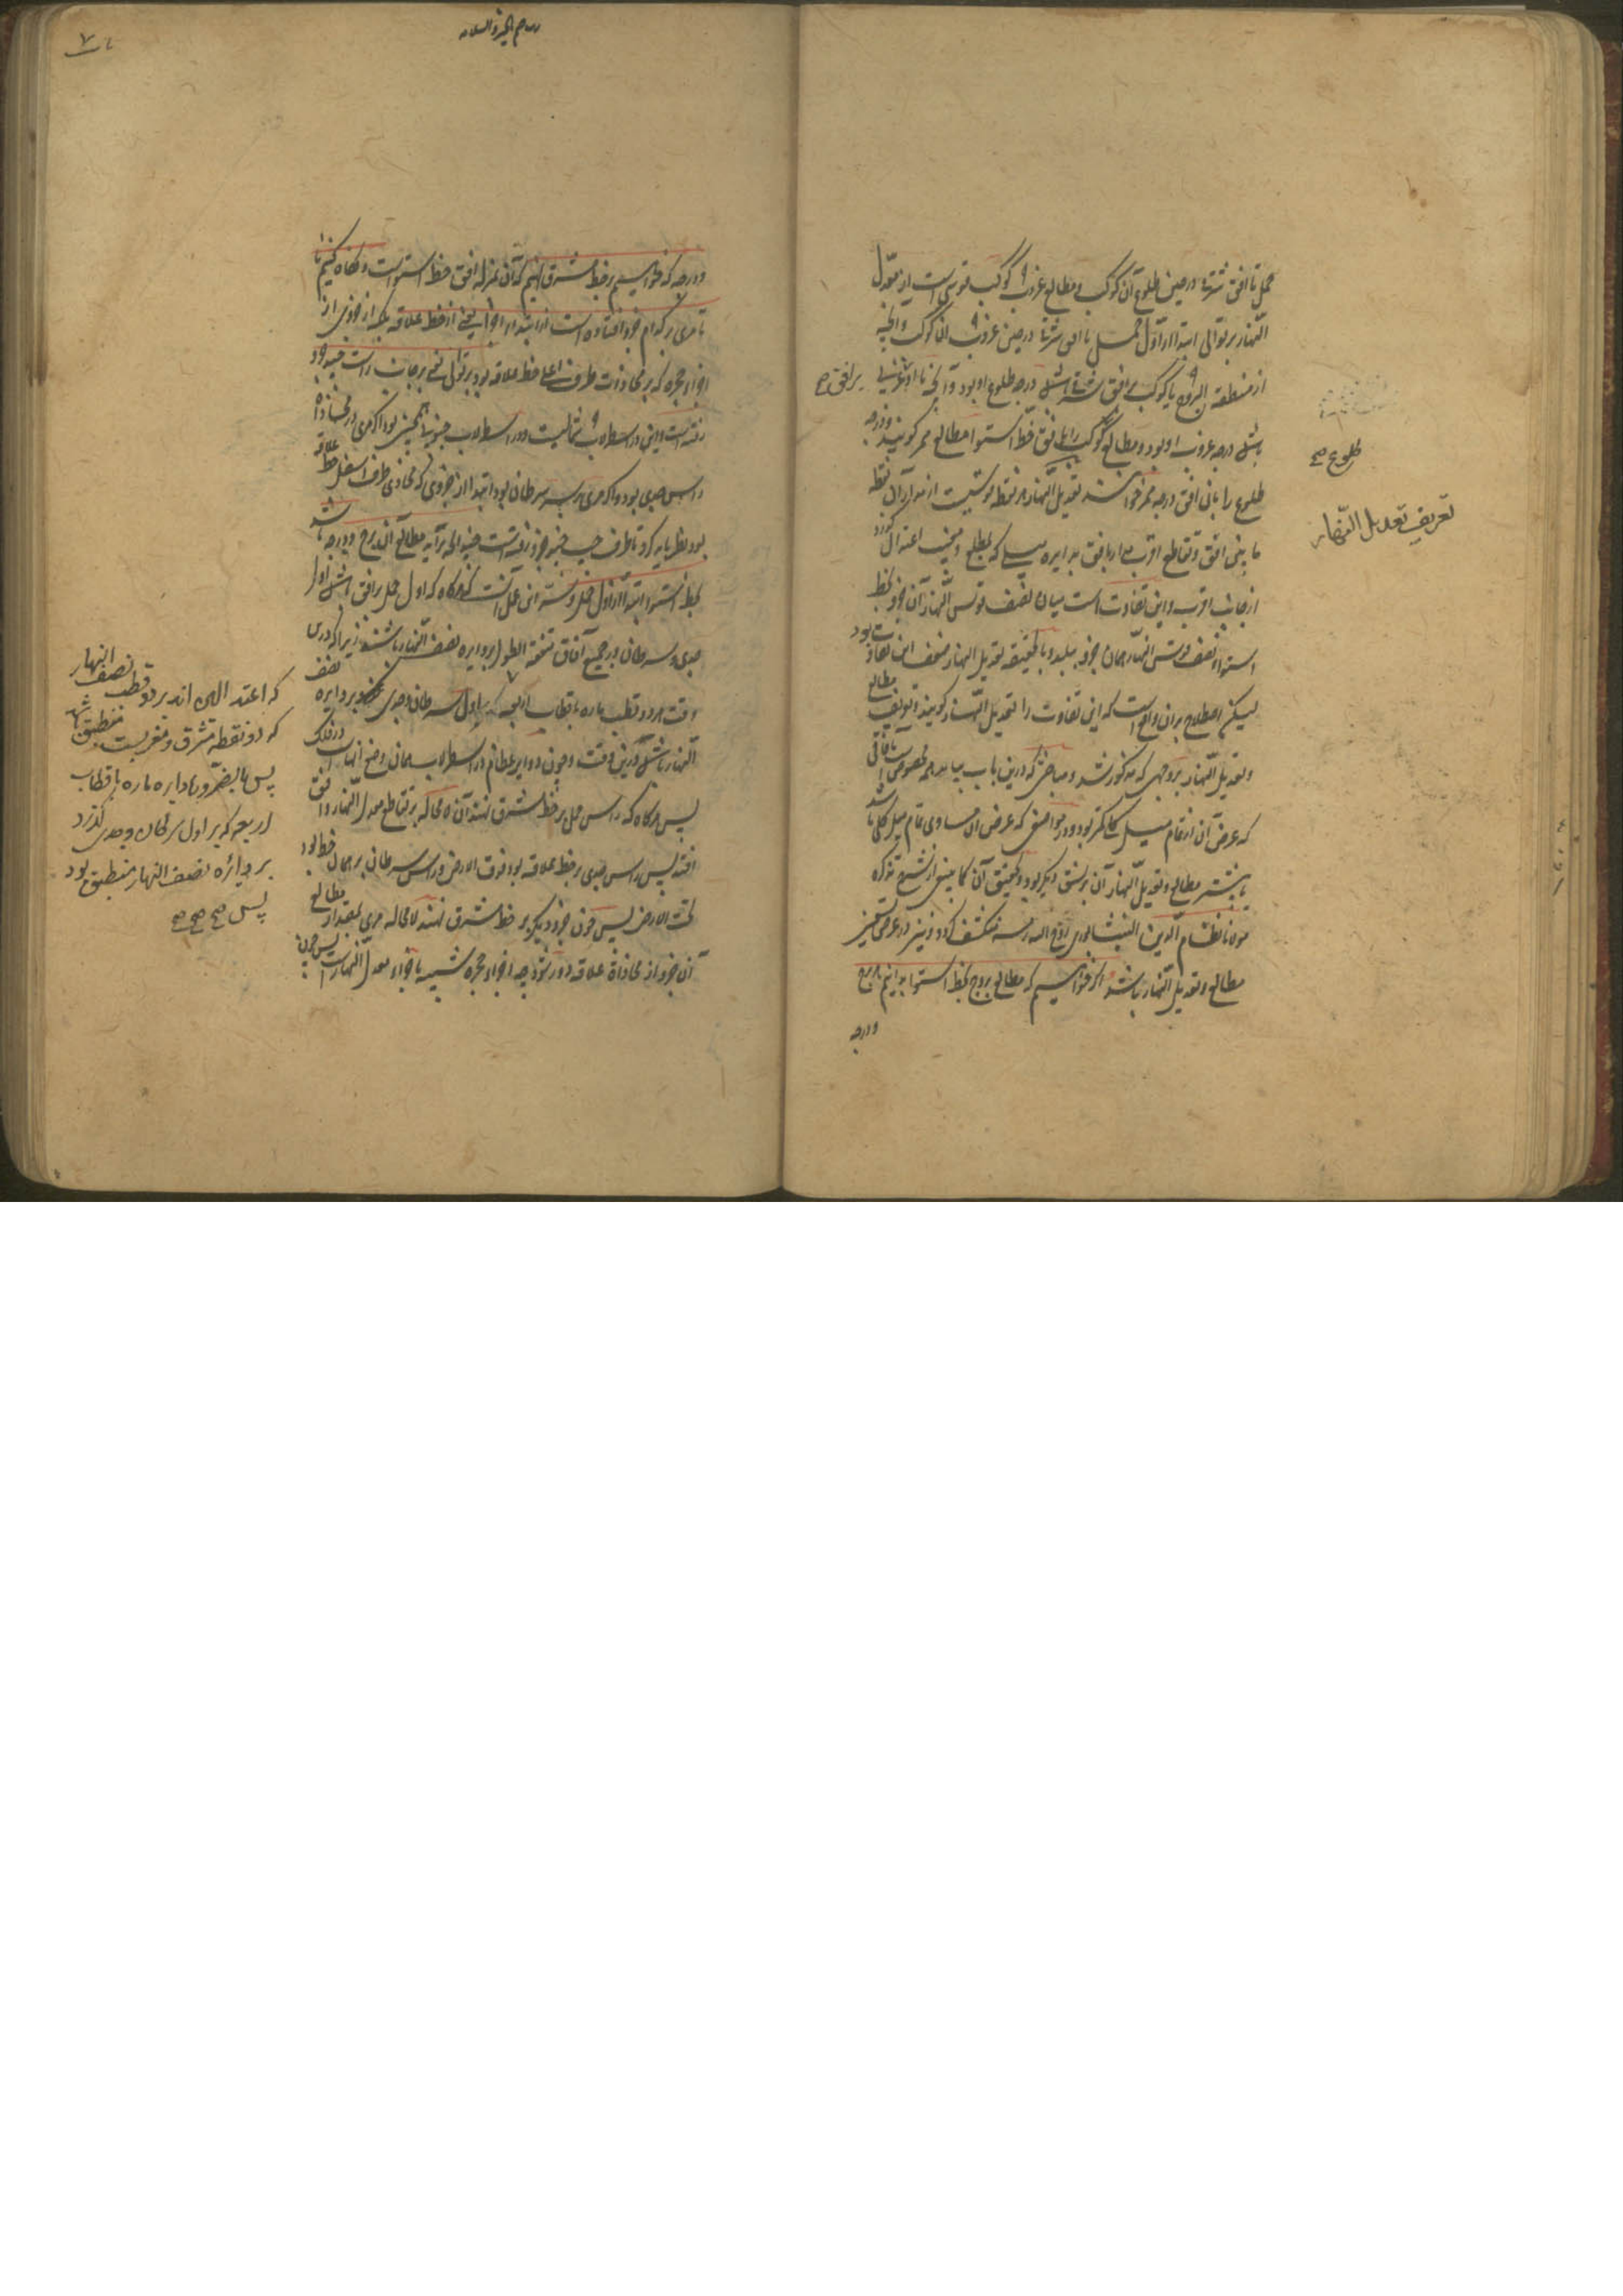 حمل تا افق شرقی در حین طلوع آن کوکب و مطالع غروب کوکب قوسی است از معدل
النهار بر توالی ابتدا از اول حمل تا افق شرقی در حین غروب آن کوکب و آنچه
از منطقة البروج با کوکب بر افق شرقی باشد درجه طلوع او بود و آنچه با او بر افق غربی
باشد درجه غروب او بود و مطالع کوکب را بافق خط استوا مطالع ممر گویند و درجه
طلوع را باین افق درجه ممر خوانند تعدیل النهار هر نقطه قوسیست از مدار آن نقطه
ما بین افق و تقاطع اقرب مدار با افق بدایره میل که بمطلع و مغیب اعتدال گذرد
از جانب اقرب و این تفاوت است میان نصف قوس النهار آن جزو بخط
استوا و نصف قوس النهار همان جزو ببلد و بالحقیقه تعدیل النهار نصف این تفاوت بود
لیکن اصطلاح بر آن واقع است که این تفاوت را تعدیل النهار گویند و تعریف مطالع
و تعدیل النهار بر وجهی که مذکور شد و مباحثی که درین باب بیاید مخصوص است بآفاقی
که عرض آن از تمام میل کلی کمتر بود و در مواضعی که عرض آن مساوی تمام میل کلی باشد
یا بیشتر مطالع و تعدیل النهار آن بر نسق دیگر بود و تحقیق آن کما ینبغی از شرح تذکره
مولانا نظام الدین النیشابوری روح الله رمسه منکشف گردد و نیز در عرض تسعین
مطالع و تعدیل النهار نباشد اگر خواهیم که مطالع بروج بخط استوا بدانیم بروج
و درجه
طلوع صح
تعریف تعدیل النهار
و درجه که خواهیم بر خط مشرق نهیم که آن بمنزله افق خط استواست و نگاه کنیم تا
تا مری بر کدام جزو افتاده است از ابتداء اجزا یعنی از خط علاقه بلکه از جزوی از
اجزاء حجره که بر محاذات طرف اعلی خط علاقه بود بر توالی یعنی بر جانب راست چند جزو
رفته است و این در اسطرلاب شمالیست و در اسطرلاب جنوبی همچنین بود اگر مری در محاذاة
راس جدی بود و اگر مری بر سر سرطان بود ابتدا از جزوی که محاذی طرف اسفل خط علاقه
بود نظر باید کرد تا بطرف چپ چند جزو رفته است چندانکه برآید مطالع آن برج و درجه باشد
بخط استوا ابتدا از اول حمل و سر این عمل آنست که هرگاه که اول حمل بر افق باشد اول
جدی و سرطان در جمیع آفاق متفقة الطول بر دایره نصف النهار باشند زیرا که درین
وقت هر دو قطب ماره باقطاب اربعه که باول سرطان و جدی گذرد بر دایره نصف
النهار باشد درین وقت و چون دوایر عظام در اسطرلاب بهمان وضع اند که در فلک
پس هرگاه که راس حمل بر خط مشرق نهند آن لا محاله بر تقاطع معدل النهار و افق
افتد پس راس جدی بر خط علاقه بود فوق الارض و راس سرطان بر همان خط بود
تحت الارض پس چون جزو دیگر بر خط مشرق نهند لا محاله مری بمقدار مطالع
آن جزو از محاذاة علاقه دور شود چه اجزاء حجره شبیه باجزاء معدل النهار است پس چون
که اعتدالین اند بر دو قطب نصف النهار
که دو نقطه مشرق و مغربست منطبق شد
پس بالضروره دایره ماره باقطاب
اربعه که بر اول سرطان و جدی گذرد
بر دایره نصف النهار منطبق بود
پس صح صح صح